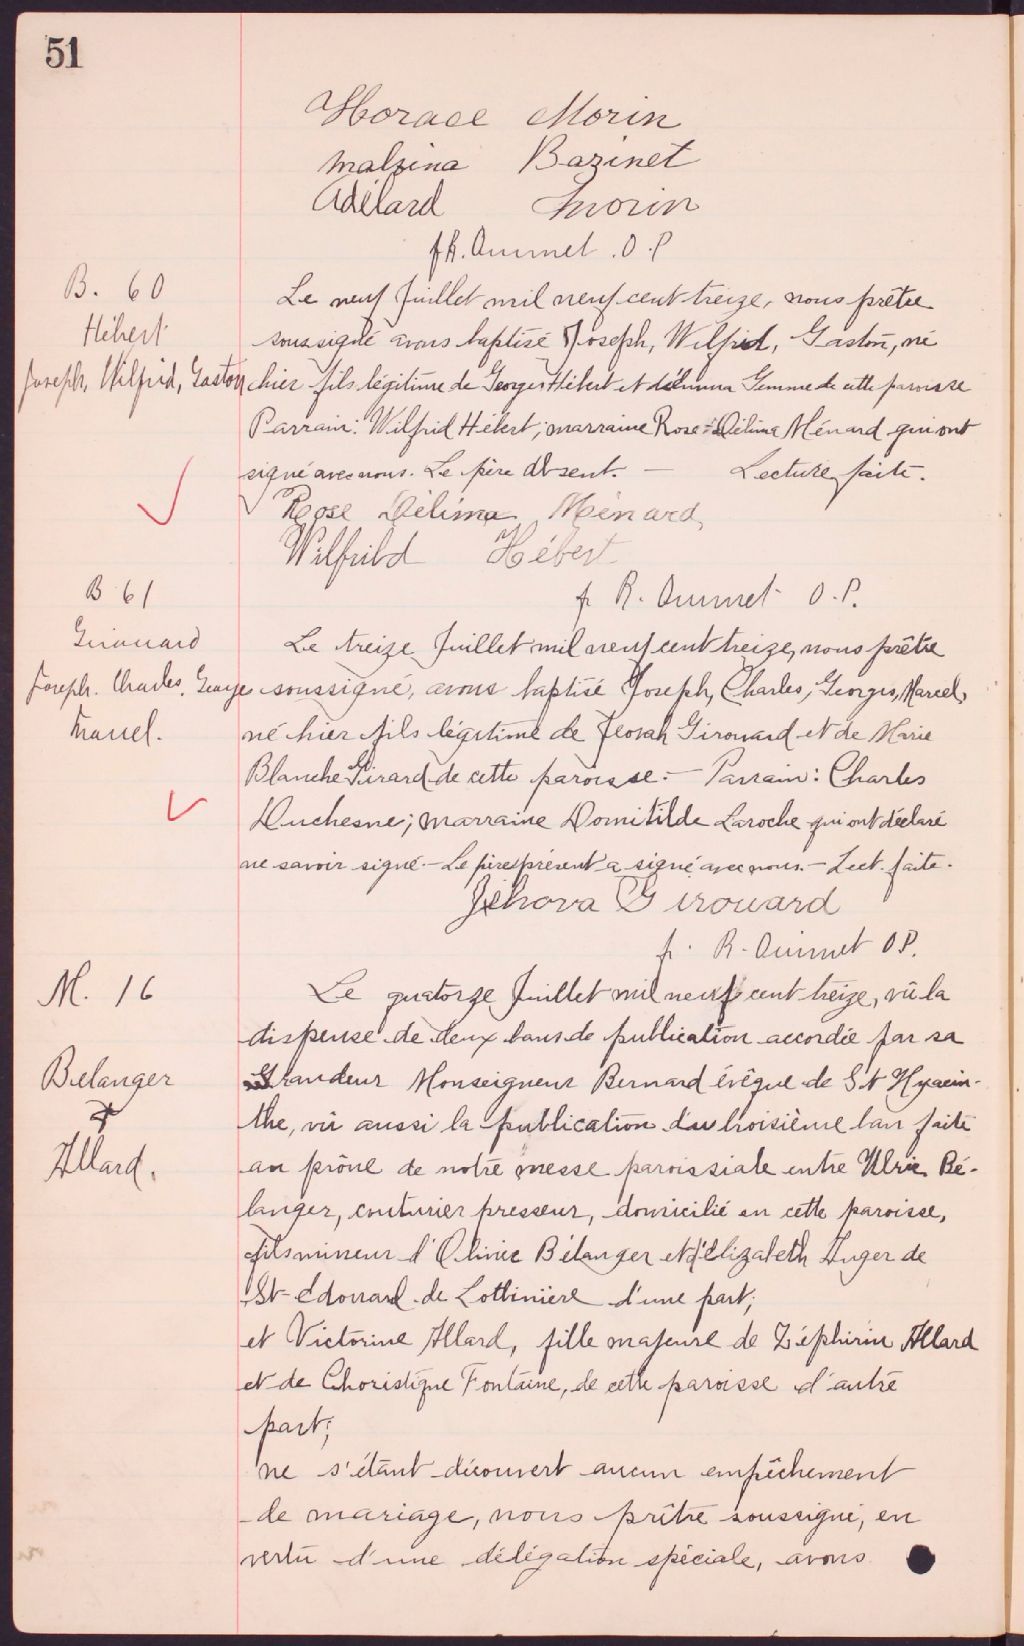 51
Horace Morin
Malvina Bazinet
Adélard Morin
fr. R. Ouimet O.P
B. 60
Hébert
Joseph, Wilfrid, Gaston
Le neuf Juillet mil neuf cent treize, nous prêtre
soussigné avons baptisé Joseph, Wilfrid, Gaston, né
hier fils légitime de Georges Hébert et d'Emma Gemme de cette paroisse
Parrain: Wilfrid Hébert; marraine Rose-Délima Ménard qui ont
signé avec nous. Le père absent. — Lecture faite.
Rose Délima Ménard,
Wilfrid Hébert
fr R. Ouimet O.P.
B 61
Girouard
Joseph. Charles. George
Marcel.
Le treize Juillet mil neuf cent treize, nous prêtre
soussigné, avons baptisé Joseph, Charles, Georges, Marcel,
né hier fils légitime de Jeovah Girouard et de Marie
Blanche Girard de cette paroisse. — Parrain: Charles
Duchesne; marraine Domitilde Laroche qui ont déclaré
ne savoir signé. — Le père présent a signé avec nous. — Lect. faite.
Jéhova Girouard
fr. R. Ouimet O.P.
M. 16
Belanger
&
Allard.
Le quatorze Juillet mil neuf cent treize, vû la
dispense de deux bans de publication accordée par sa
Grandeur Monseigneur Bernard évêque de St Hyacin-
the, vû aussi la publication du troisième ban faite
au prône de notre messe paroissiale entre Ulric Bé-
langer, couturier presseur, domicilié en cette paroisse,
fils mineur d'Olivier Bélanger et d'Elizabeth Auger de
St-Edouard de Lotbinière d'une part;
et Victorine Allard, fille majeure de Zéphirin Allard
et de Choristique Fontaine, de cette paroisse d'autre
part;
ne s'étant découvert aucun empêchement
de mariage, nous prêtre soussigné, en
vertu d'une délégation spéciale, avons